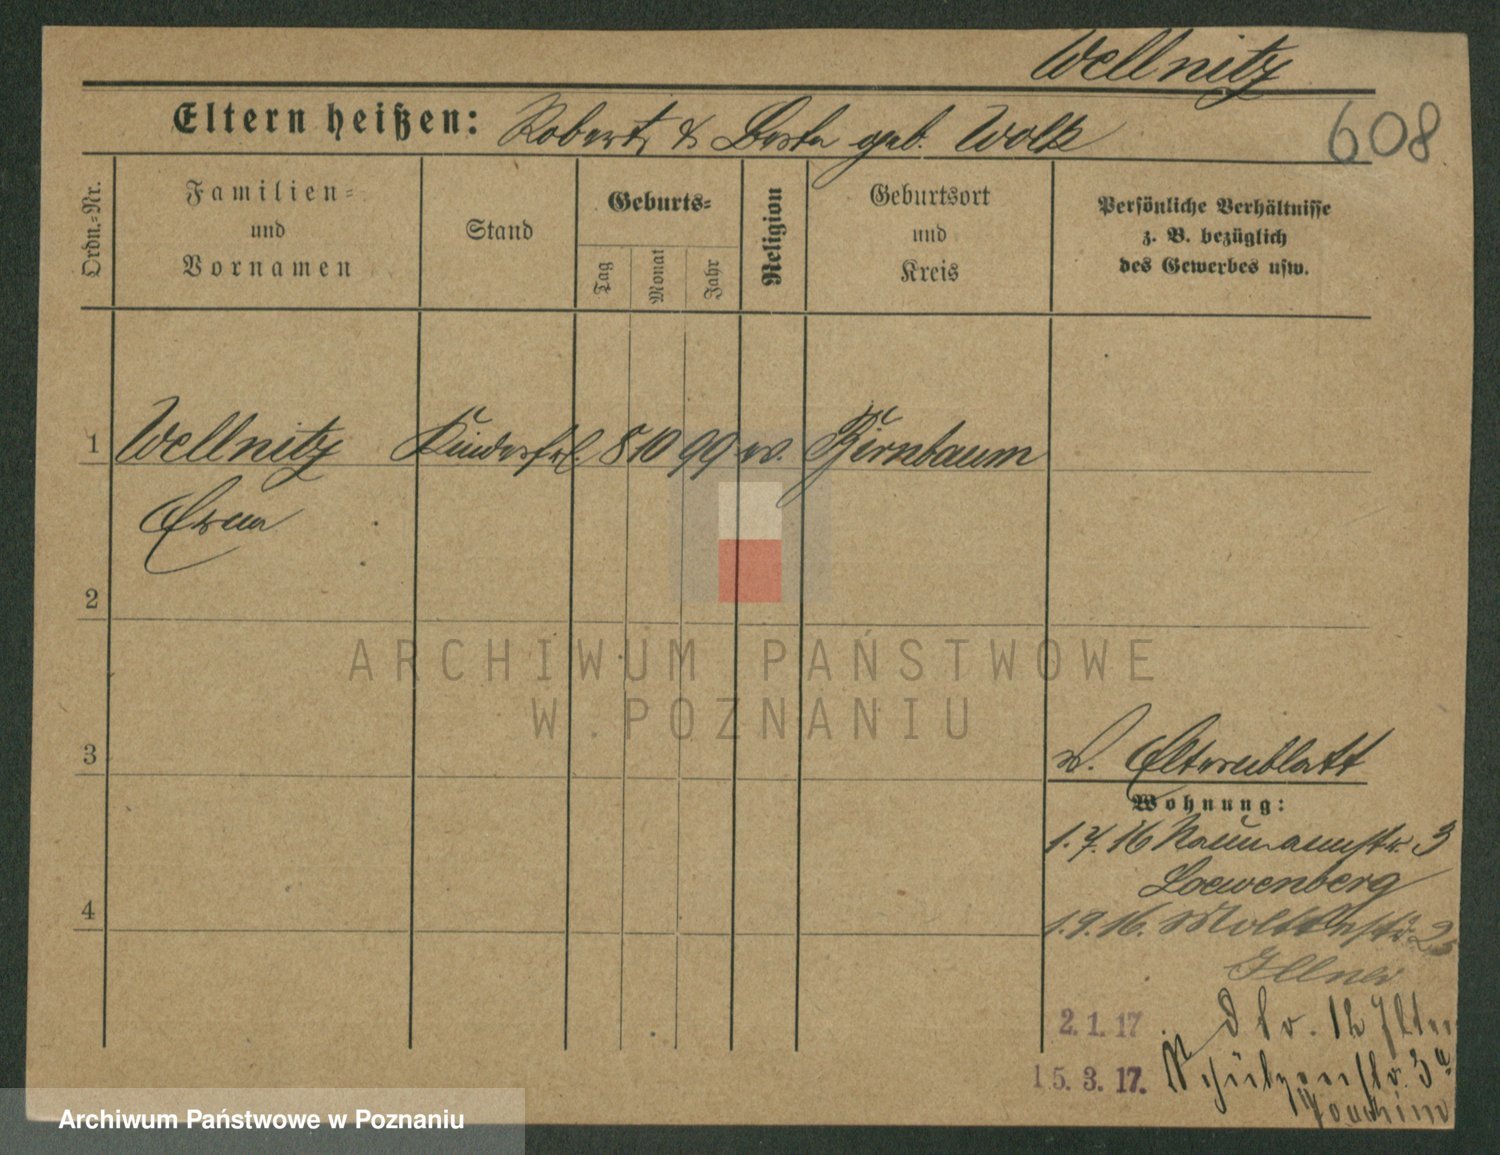 Wellnitz
Eltern heißen: Robert & Berta geb. Wolk
608
Ordn.=Nr.
Familien=
und
Vornamen
Stand
Geburts=
Tag
Monat
Jahr
Religion
Geburtsort
und
Kreis
Persönliche Verhältnisse
z. B. bezüglich
des Gewerbes usw.
1 Wellnitz Kinderfrl. 8 10 99 ev. Birnbaum
Erna
2
ARCHIWUM PAŃSTWOWE
W POZNANIU
3
Elternblatt
Wohnung:
1.7.16 Naumannstr. 3
Loewenberg
4
1.9.16. Moltkestr. 25
Illner
2. 1. 17
15. 3. 17. Schützenstr. 3a
Joachim
Archiwum Państwowe w Poznaniu